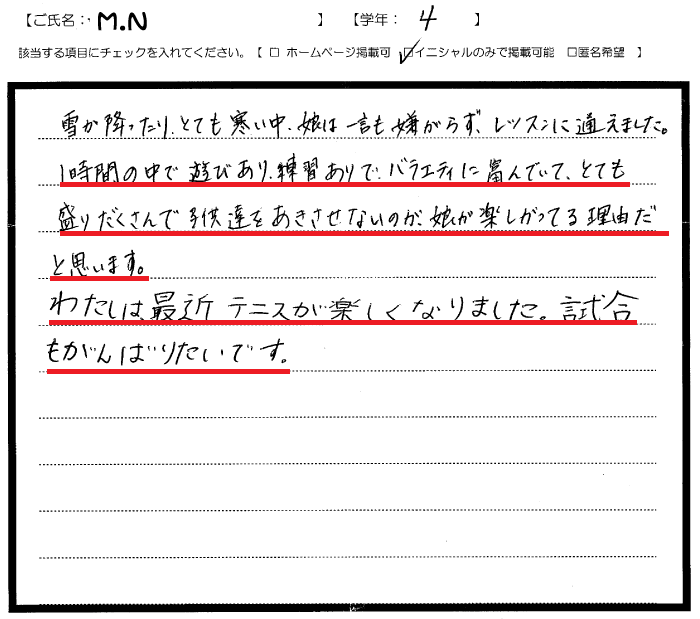 【ご氏名：M.N 】 【学年：4 】
該当する項目にチェックを入れてください。【 □ ホームページ掲載可 ☑イニシャルのみで掲載可能 □匿名希望 】
雪が降ったり、とても寒い中、娘は一言も嫌がらず、レッスンに通えました。
1時間の中で遊びあり、練習ありで、バラエティに富んでいて、とても
盛りだくさんで子供達をあきさせないのが、娘が楽しがってる理由だ
と思います。
わたしは、最近テニスが楽しくなりました。試合
もがんばりたいです。